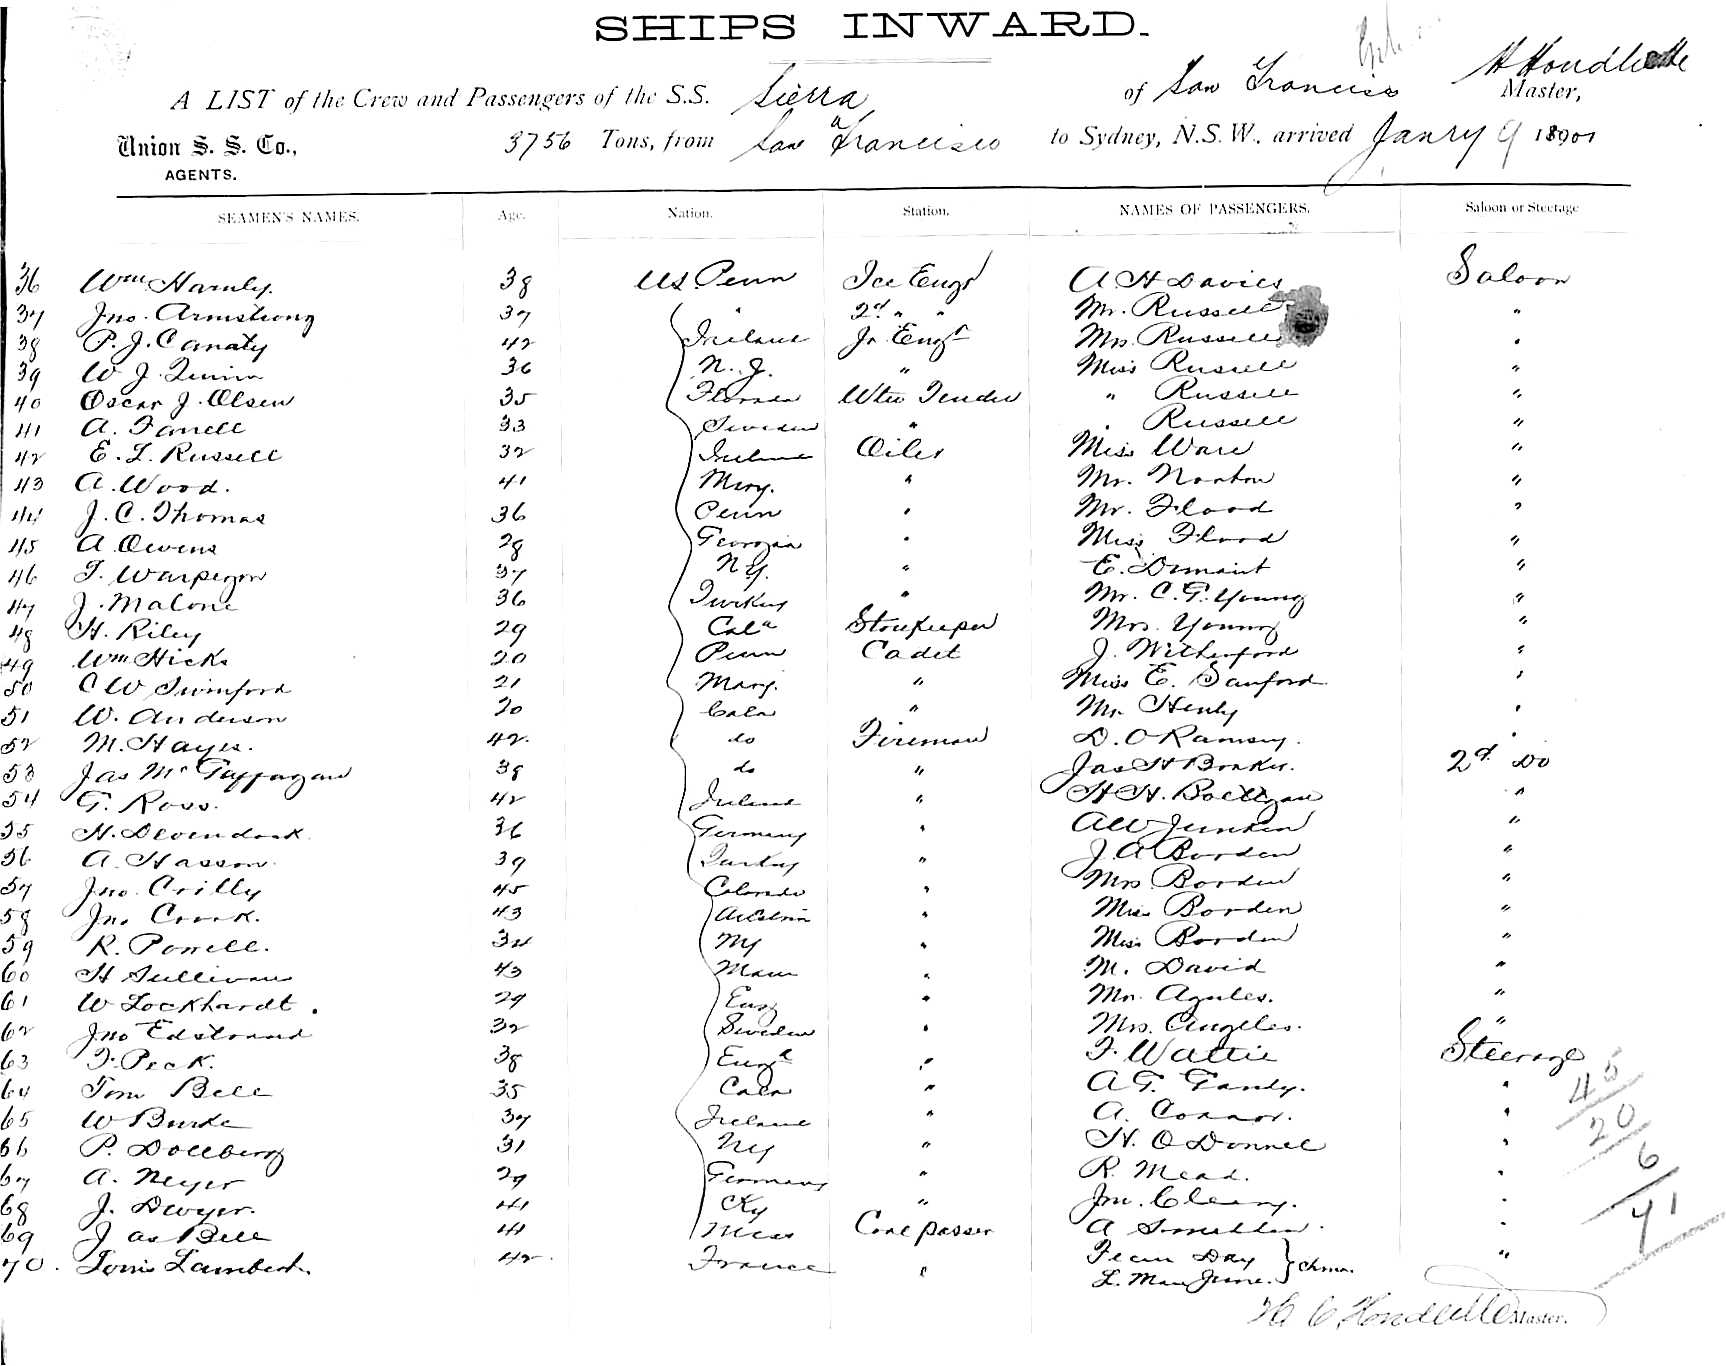 SHIPS INWARD.
A LIST of the Crew and Passengers of the S.S. Sierra of San Francisco Master,
Union S. S. Co., 3756 Tons, from San Francisco to Sydney, N.S.W., arrived Janry 9 1901
AGENTS.
SEAMEN'S NAMES. Age. Nation. Station. NAMES OF PASSENGERS. Saloon or Steerage
36 Wm Harnly. 38 US Penn Ice Engr A H Davies Saloon
37 Jno. Armstrong 37 " 2d " " Mr. Russell "
38 P. J. Canaty 42 Ireland Jr Engr Mrs Russell "
39 W J. Quinn 36 N. J. " Miss Russell "
40 Oscar J. Olsen 35 Florida Wtr Tender " Russell "
41 A. Farrell 33 Sweden " " Russell "
42 E. L. Russell 32 Ireland Oiler Miss Ware "
43 A. Wood. 41 Mary. " Mr. Norton "
44 J. C. Thomas 36 Penn " Mr. Flood "
45 A. Owens 28 Georgia " Miss Flood "
46 37 N Y. " E. "
47 J. Malone 36 Turkey " Mr. C. G. Young "
48 H. Riley 29 Cala Storekeeper Mrs. Young "
49 Wm Hicks 20 Penn Cadet J. Witherford "
50 C W Swinford 21 Mary. " Miss E. Sanford "
51 W. Anderson 20 Cala " Mr Henly "
52 M. Hayes. 42. do Fireman D. O Ramsey. "
53 Jas Mc 38 do " Jas H 2d Do
54 G. Ross. 42 Ireland " H H. "
55 H. 36 Germany " A W Junken "
56 A. Hasson. 39 Turkey " J. A Borden "
57 Jno. Crilly 45 Colorado " Mrs Borden "
58 Jno Crook. 43 " Miss Borden "
59 R. Powell. 34 NY " Miss Borden "
60 H Sullivan 43 " M. David "
61 W Lockhardt. 29 Eng " Mr. "
62 Jno Edstrand 32 Sweden " Mrs. Angeles. "
63 F. Peck. 38 Engd " F. Wattie Steerage
64 Tom Bell 35 Cala " A G. Gandy. "
65 W Burke 37 Ireland " A. Connor. "
66 P. Dollberg 31 NY " H. O Donnell "
67 A. Neyer 29 Germany " R. Mead. "
68 J. Dwyer. 41 Ky " Jno. Cleary. "
69 Jas Bell 41 Mess Coalpasser A "
70. Louis Lambert. 42. France " Day "
L. chna.
45
20
6
71
Master.